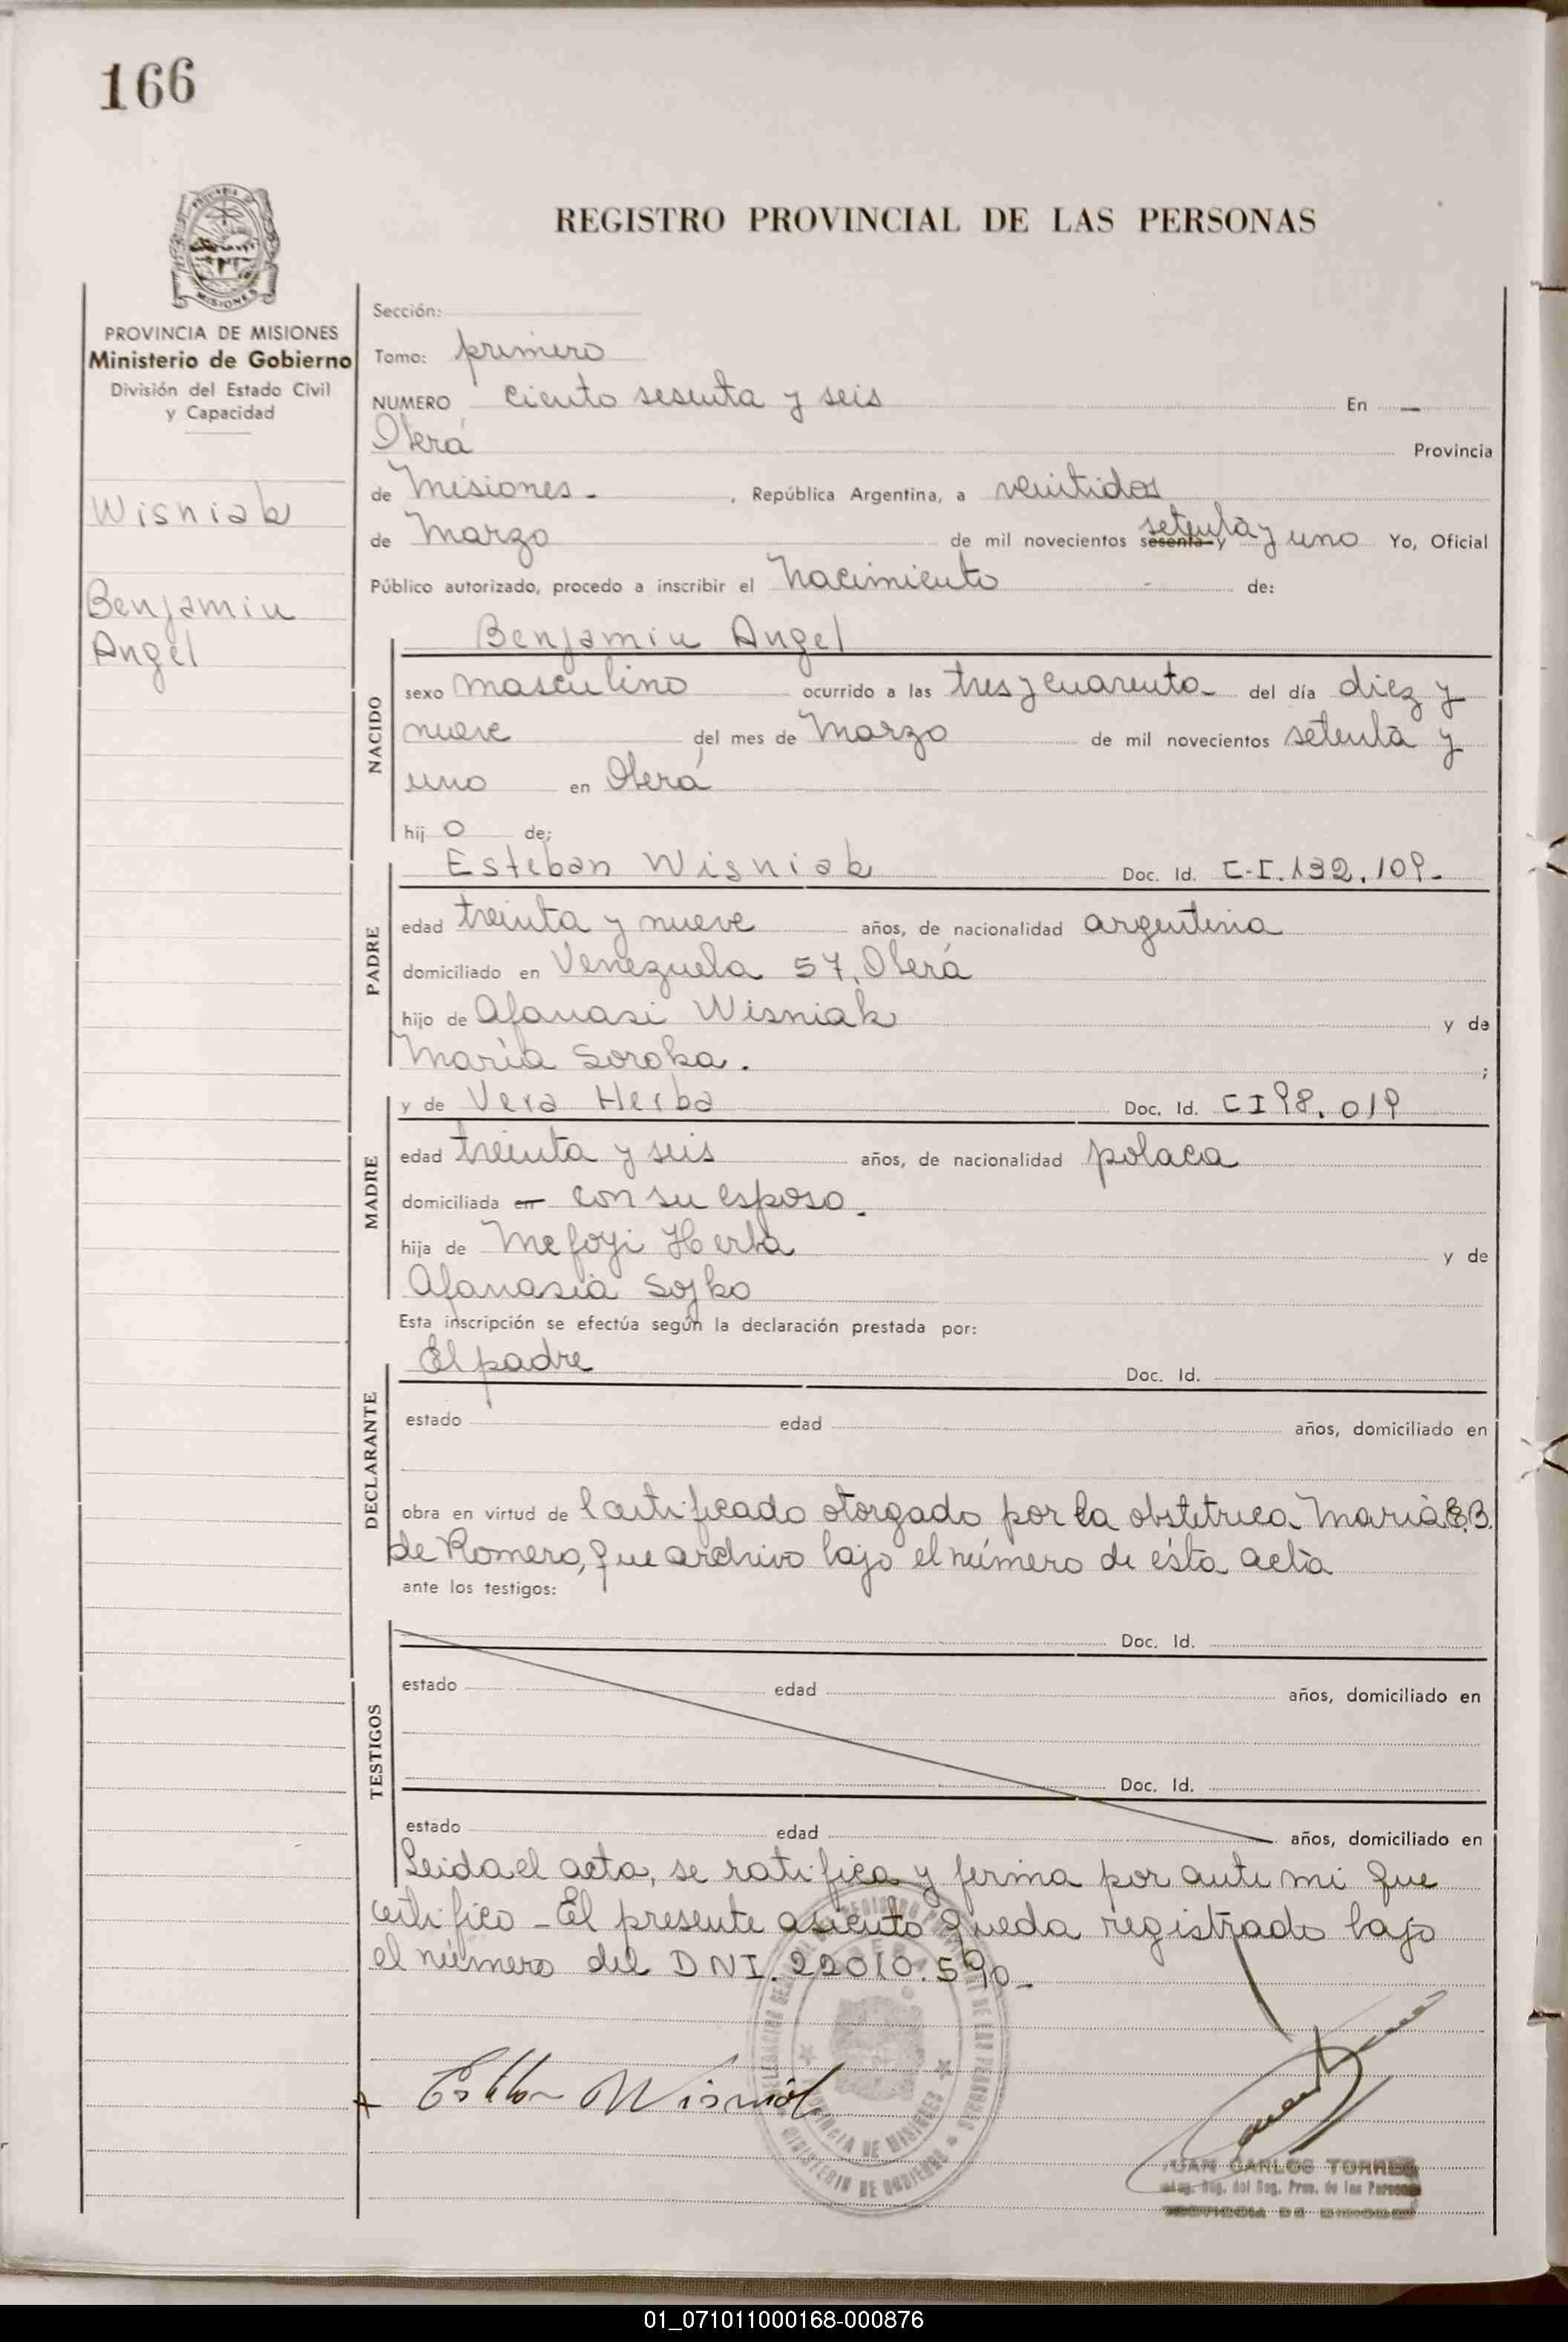 166
REGISTRO PROVINCIAL DE LAS PERSONAS
MISIONES
PROVINCIA DE MISIONES
Ministerio de Gobierno
División del Estado Civil
y Capacidad
Wisniak
Benjamin
Angel
Sección:
Tomo: primero
NUMERO ciento sesenta y seis En —
Oberá Provincia
de Misiones - , República Argentina, a veintidos
de Marzo de mil novecientos sesenta y setenta y uno Yo, Oficial
Público autorizado, procedo a inscribir el Nacimiento - de:
NACIDO
Benjamin Angel
sexo masculino ocurrido a las tres y cuarenta - del día diez y
nueve del mes de Marzo de mil novecientos setenta y
uno en Oberá
hij o de;
PADRE
Esteban Wisniak Doc. Id. C.I. 132.109.-
edad treinta y nueve años, de nacionalidad argentina
domiciliado en Venezuela 57, Oberá
hijo de Afanasi Wisniak y de
María Soroka. ;
MADRE
y de Vera Herba Doc. Id. C I 98.019
edad treinta y seis años, de nacionalidad polaca
domiciliada en con su esposo.
hija de Mefoyi Herba y de
Afanasia Sojko
Esta inscripción se efectúa según la declaración prestada por:
DECLARANTE
El padre Doc. Id.
estado edad años, domiciliado en
obra en virtud de Certificado otorgado por la obstetrica María E.B.
de Romero, que archivo bajo el número de ésta acta
ante los testigos:
TESTIGOS
Doc. Id.
estado edad años, domiciliado en
Doc. Id.
estado edad años, domiciliado en
Leida el acta, se ratifica y firma por ante mi que
certifico - El presente asiento queda registrado bajo
el número del DNI. 22010.590 -
Esteban Wisniak
PROVINCIA DE MISIONES
MINISTERIO DE GOBIERNO
JUAN CARLOS TORRES
del Reg. Prov. de las Personas
PROVINCIA DE MISIONES
01_071011000168-000876